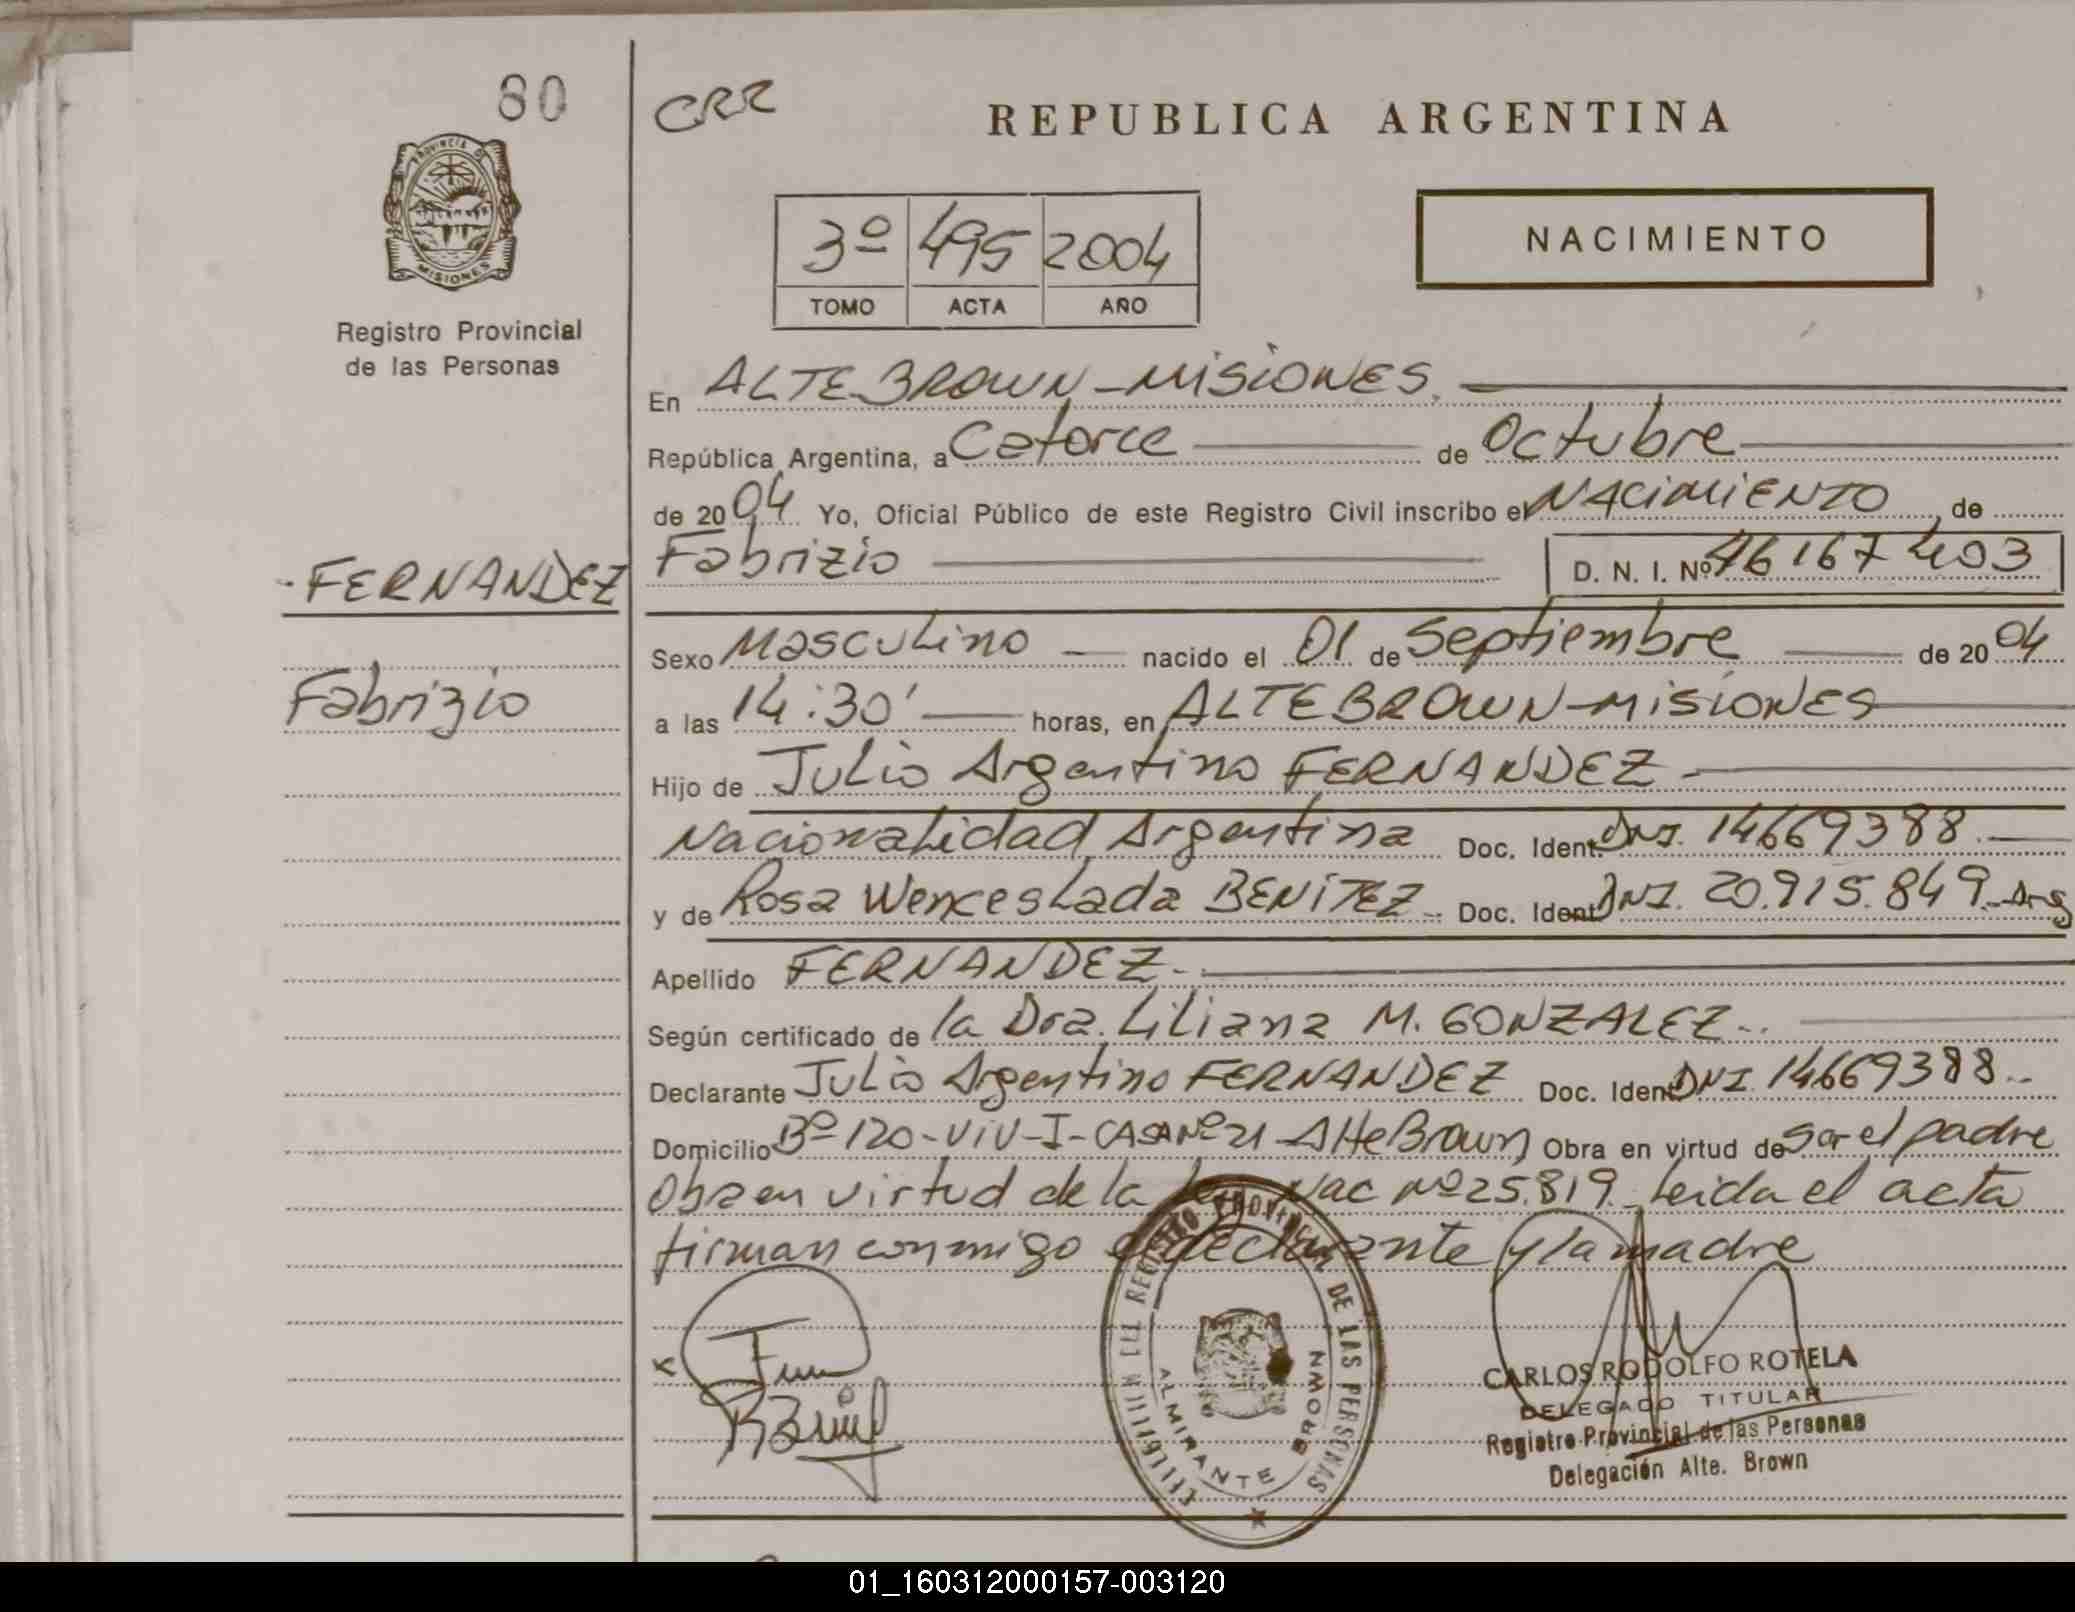 80
CRR
REPUBLICA ARGENTINA
PROVINCIA DE
MISIONES
Registro Provincial
de las Personas
3º 495 2004
TOMO ACTA AÑO
NACIMIENTO
En ALTE BROWN - MISIONES.
República Argentina, a Catorce de Octubre
de 2004 Yo, Oficial Público de este Registro Civil inscribo el NACIMIENTO, de
FERNANDEZ
Fabrizio D. N. I. Nº 46167403
Sexo Masculino nacido el 01 de Septiembre de 2004
Fabrizio
a las 14:30' horas, en ALTE BROWN - MISIONES
Hijo de Julio Argentino FERNANDEZ
Nacionalidad Argentina Doc. Ident. DNI. 14669388.
y de Rosa Wenceslada BENITEZ Doc. Ident. DNI. 20.915.849. Arg
Apellido FERNANDEZ.
Según certificado de la Dra. Liliana M. GONZALEZ..
Declarante Julio Argentino FERNANDEZ Doc. Ident. DNI. 14669388..
Domicilio Bº 120-VIV-I-CASA Nº 21 Alte Brown Obra en virtud de ser el padre
Obra en virtud de la ley Nac Nº 25.819. Leida el acta
firman conmigo el declarante y la madre
REGISTRO PROVINCIAL DE LAS PERSONAS
ALMIRANTE BROWN
CARLOS RODOLFO ROTELA
DELEGADO TITULAR
Registro Provincial de las Personas
Delegación Alte. Brown
01_160312000157-003120